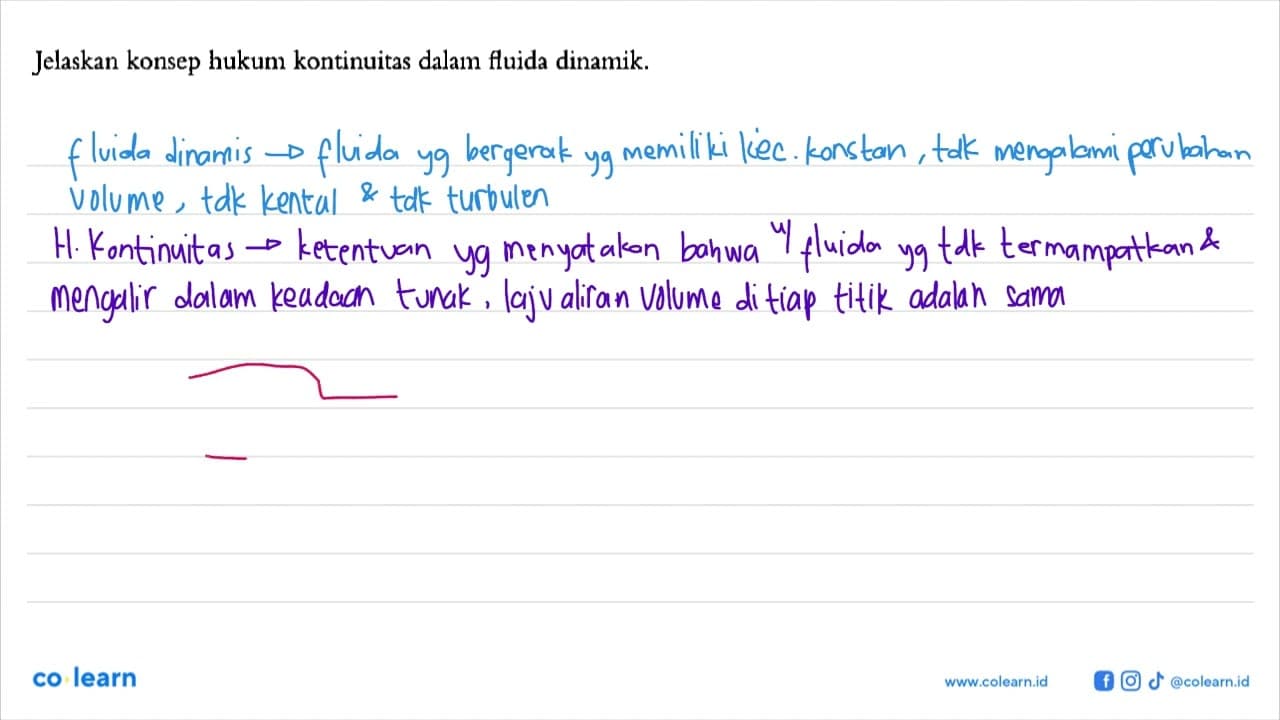 Jelaskan konsep hukum kontinuitas dalam fluida dinamik.
fluida dinamis → fluida yg bergerak yg memiliki kec. konstan, tdk mengalami perubahan
volume, tdk kental & tdk turbulen
H. Kontinuitas → ketentuan yg menyatakan bahwa u/ fluida yg tdk termampatkan &
mengalir dalam keadaan tunak, laju aliran volume di tiap titik adalah sama
co learn
www.colearn.id
@colearn.id